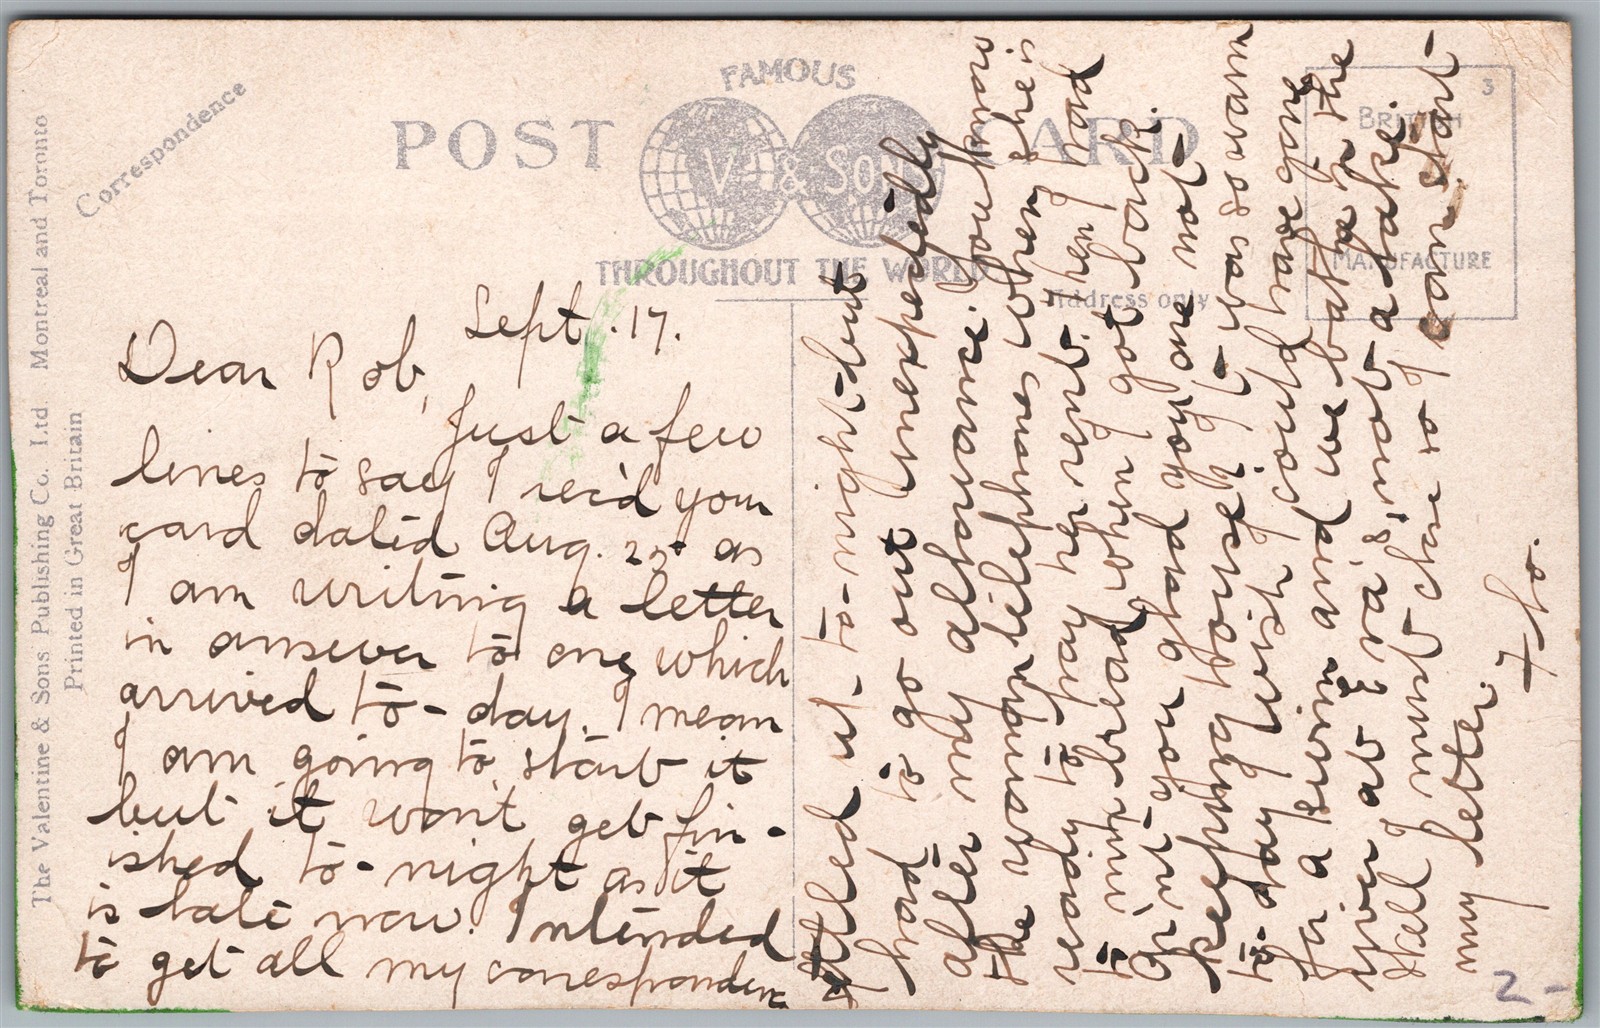 FAMOUS
POST CARD
V & SONS
THROUGHOUT THE WORLD
Correspondence
Address only
3
BRITISH
MANUFACTURE
The Valentine & Sons Publishing Co. Ltd. Montreal and Toronto
Printed in Great Britain
Sept. 17.
Dear Rob,
Just a few
lines to say I rec'd your
card dated Aug. 25 as
I am writing a letter
in answer to one which
arrived to-day. I mean
I am going to start it
but it won't get fin-
ished to-night as it
is late now. I intended
to get all my correspondence
settled up to-night but
had to go out unexpectedly
after my allowance. You know
the woman telephones when she is
ready to pay her rent. Then I had
to mix bread when I got back.
Aren't you glad you are not
keeping house? It was so warm
to-day I wish I could have gone
for a swim and we bathe in the
river at not a lake.
Well I must close so I can start
my letter.
Flo.
2-